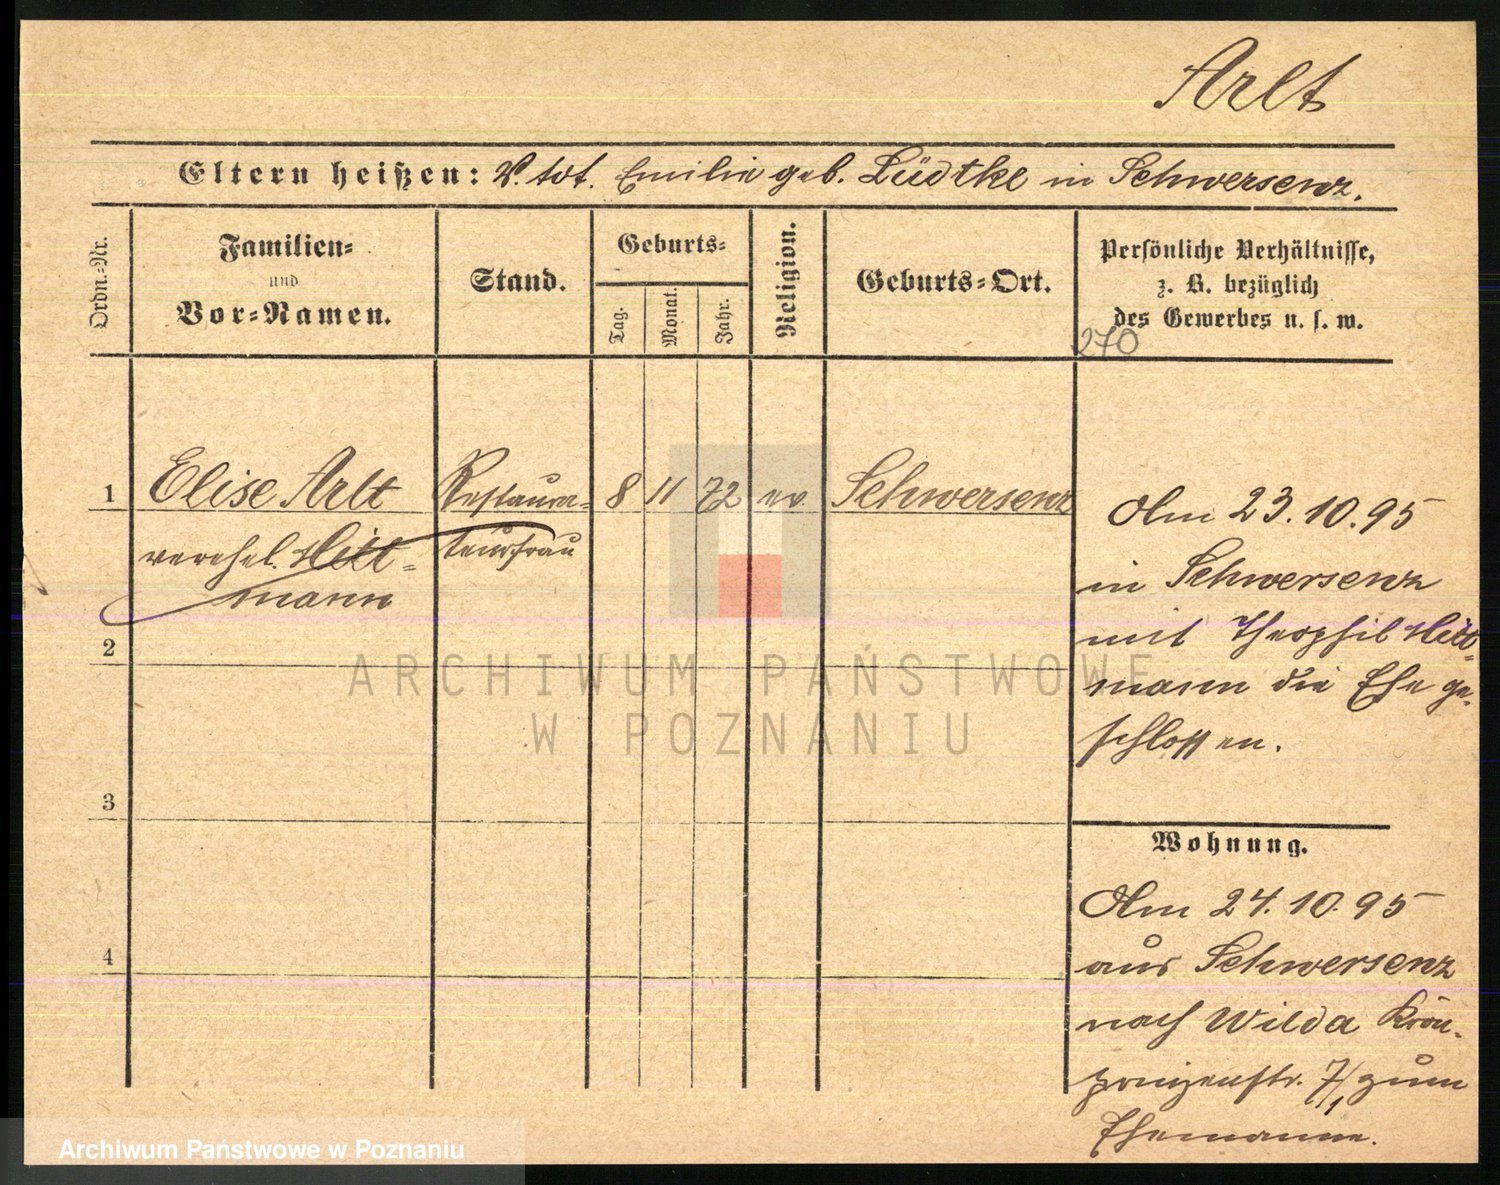 Arlt
Eltern heißen: V. tot. Emilie geb. Lüdtke in Schwersenz.
Ordn.-Nr.
Familien-
und
Vor-Namen.
Stand.
Geburts-
Tag.
Monat.
Jahr.
Religion.
Geburts-Ort.
Persönliche Verhältnisse,
z. B. bezüglich
des Gewerbes u. s. w.
270
1 Elise Arlt Restaura- 8 11 72 ev. Schwersenz
verehel. Hitt- teursfrau
mann
Am 23.10.95
in Schwersenz
mit Theophil Hitt-
mann die Ehe ge-
schlossen.
2
3
4
Wohnung.
Am 24.10.95
aus Schwersenz
nach Wilda Kron-
prinzenstr. 7/1 zum
Ehemanne.
ARCHIWUM PAŃSTWOWE
W POZNANIU
Archiwum Państwowe w Poznaniu